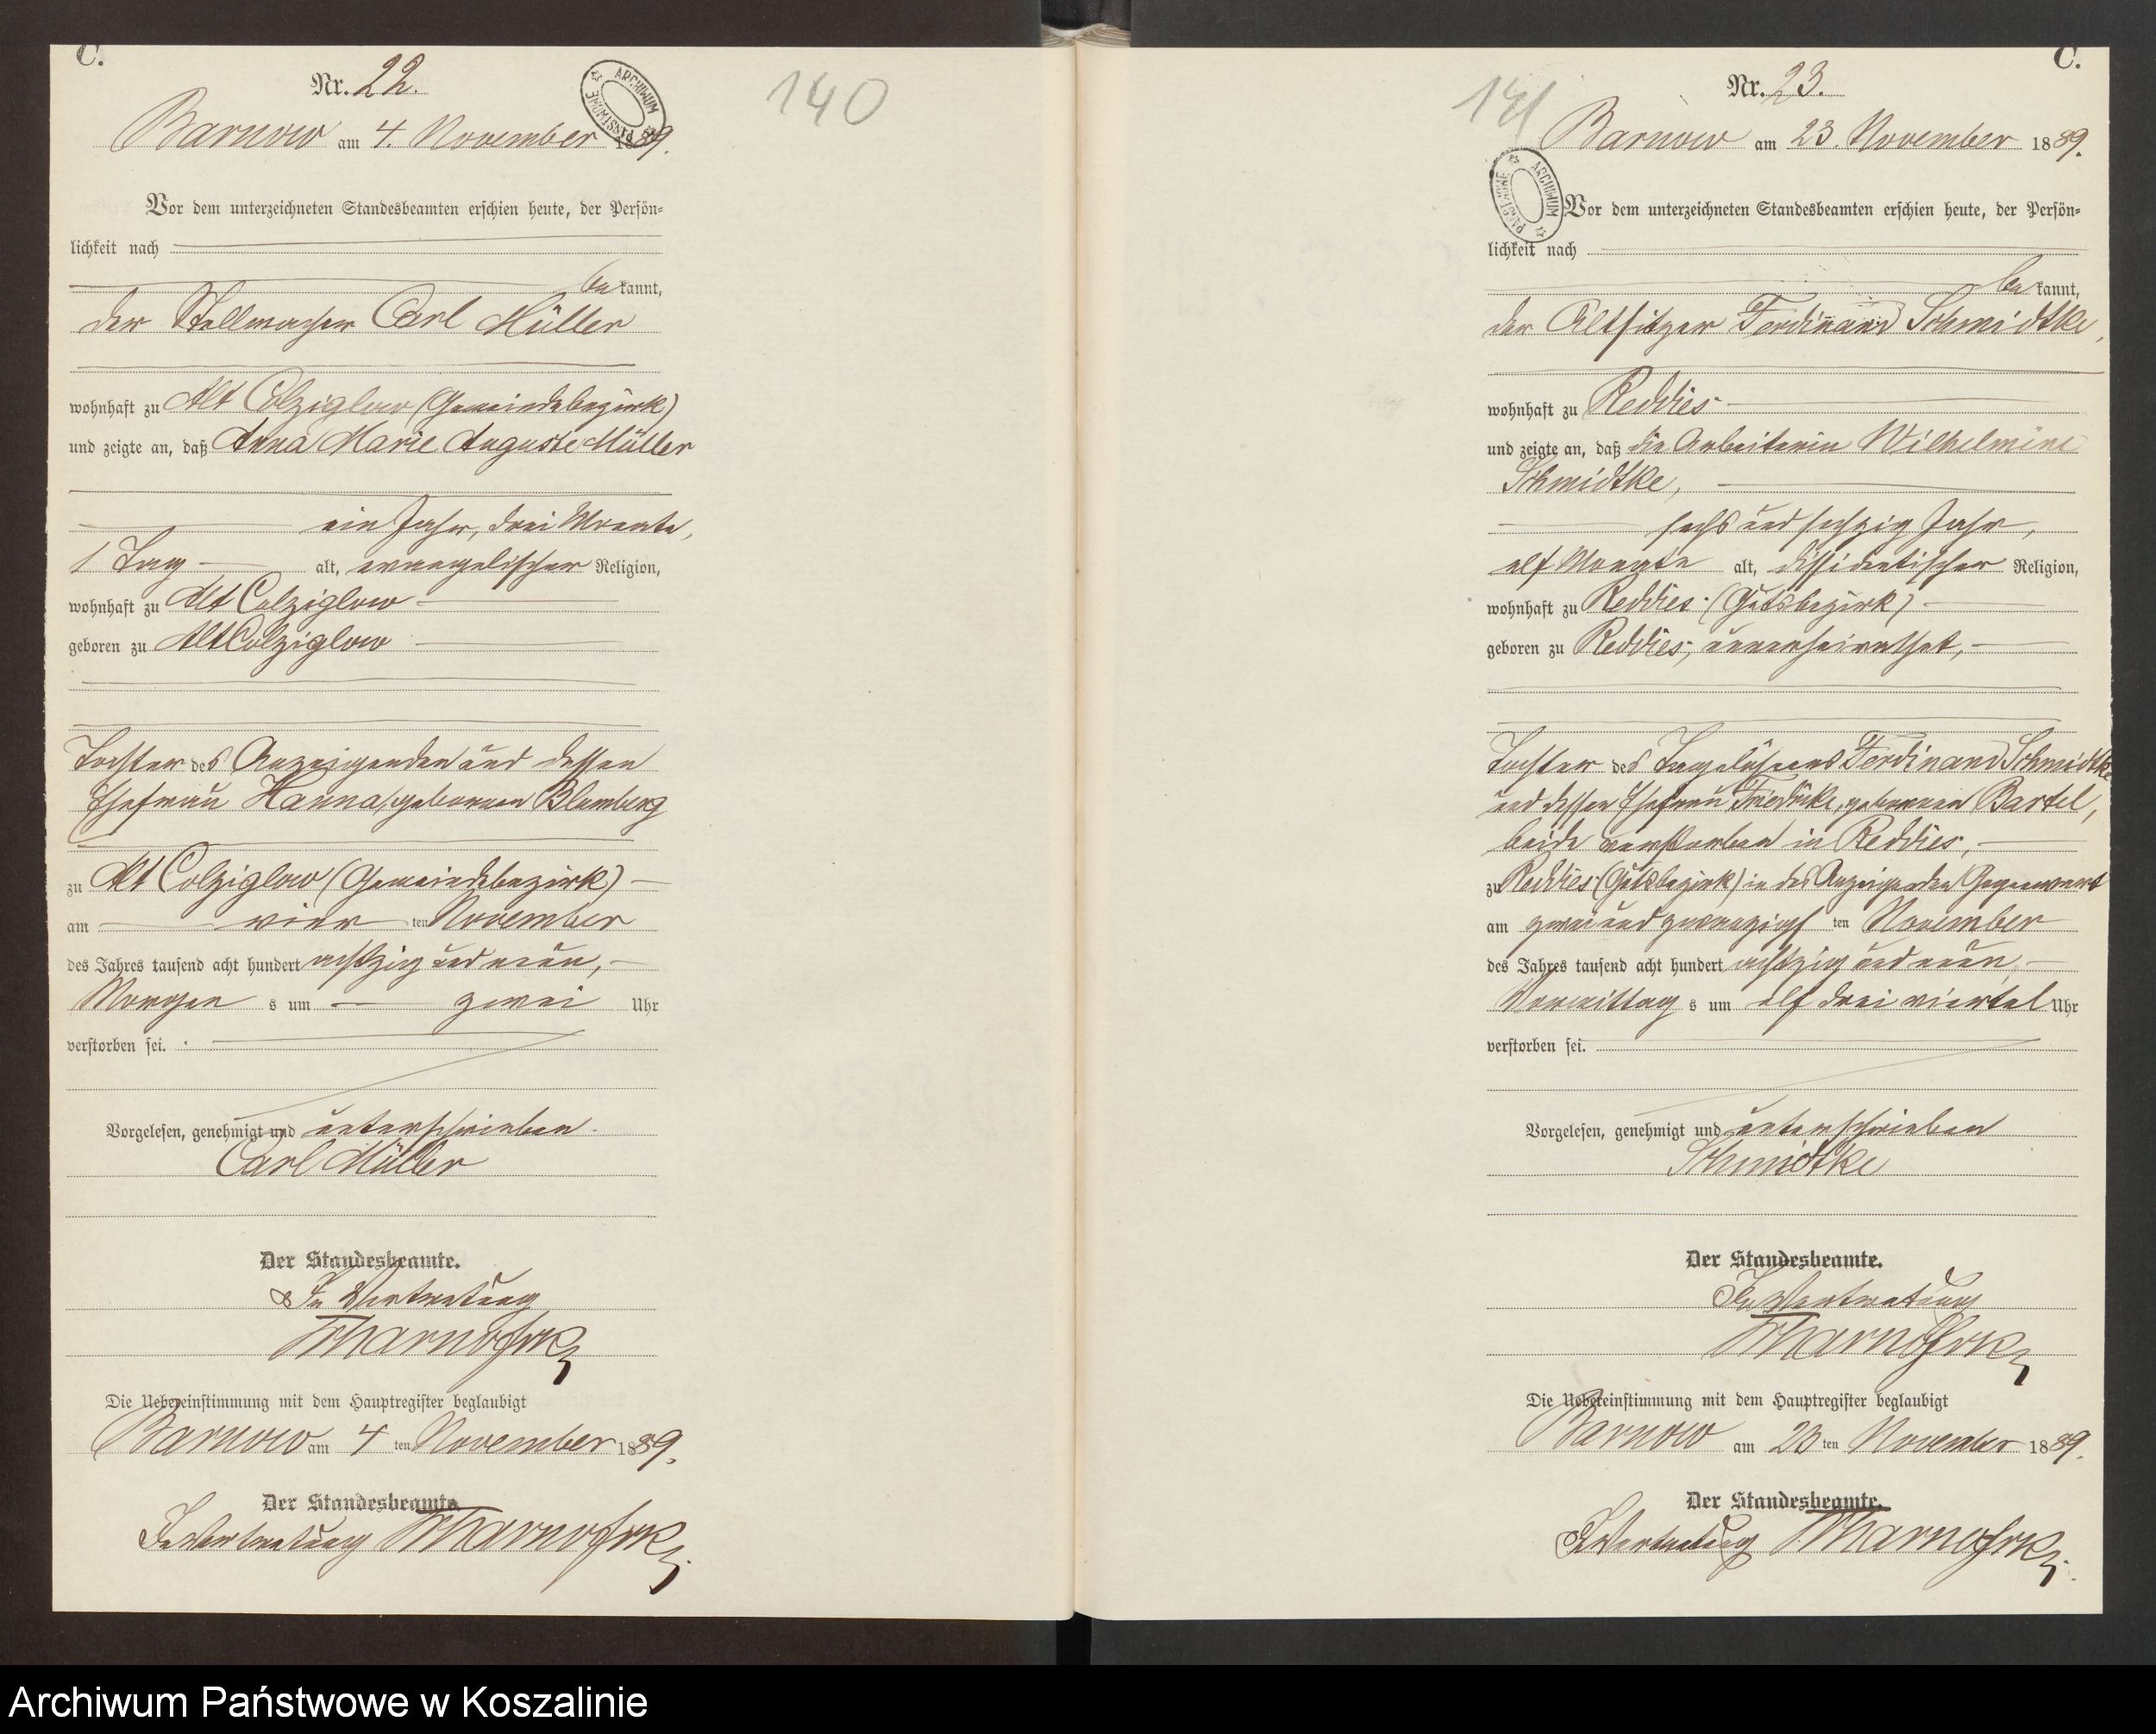 C.
Nr. 22.
140
ARCHIWUM PAŃSTWOWE
Barnow am 4. November 1889.
Vor dem unterzeichneten Standesbeamten erschien heute, der Persön-
lichkeit nach
be kannt,
der Stellmacher Carl Müller
wohnhaft zu Alt Colziglow (Gemeindebezirk)
und zeigte an, daß Anna Marie Auguste Müller
ein Jahr, drei Monate,
1 Tag alt, evangelischer Religion,
wohnhaft zu Alt Colziglow
geboren zu Alt Colziglow
Tochter des Anzeigenden und dessen
Ehefrau Hanna, geborenen Blumberg
zu Alt Colziglow (Gemeindebezirk)
am vier ten November
des Jahres tausend acht hundert achtzig und neun,
Morgen s um zwei Uhr
verstorben sei.
Vorgelesen, genehmigt und unterschrieben.
Carl Müller
Der Standesbeamte.
In Vertretung
Die Uebereinstimmung mit dem Hauptregister beglaubigt
Barnow am 4 ten November 1889.
Der Standesbeamte
In Vertretung
C.
Nr. 23.
141
ARCHIWUM PAŃSTWOWE
Barnow am 23. November 1889.
Vor dem unterzeichneten Standesbeamten erschien heute, der Persön-
lichkeit nach
be kannt,
der Altsitzer Ferdinand Schmidtke,
wohnhaft zu Reddies
und zeigte an, daß die Arbeiterin Wilhelmine
Schmidtke,
sechs und sechzig Jahr,
elf Monate alt, dissidentischer Religion,
wohnhaft zu Reddies (Gutsbezirk)
geboren zu Reddies, unverheirathet,
Tochter des Tagelöhners Ferdinand Schmidtke
und dessen Ehefrau Friedricke, geborenen Bartel,
beide verstorben in Reddies,
zu Reddies (Gutsbezirk) in des Anzeigenden Gegenwart
am zwei und zwanzigs ten November
des Jahres tausend acht hundert achtzig und neun
Vormittag s um elf drei viertel Uhr
verstorben sei.
Vorgelesen, genehmigt und unterschrieben
Schmidtke
Der Standesbeamte.
In Vertretung
Die Uebereinstimmung mit dem Hauptregister beglaubigt
Barnow am 23 ten November 1889.
Der Standesbeamte.
In Vertretung
Archiwum Państwowe w Koszalinie